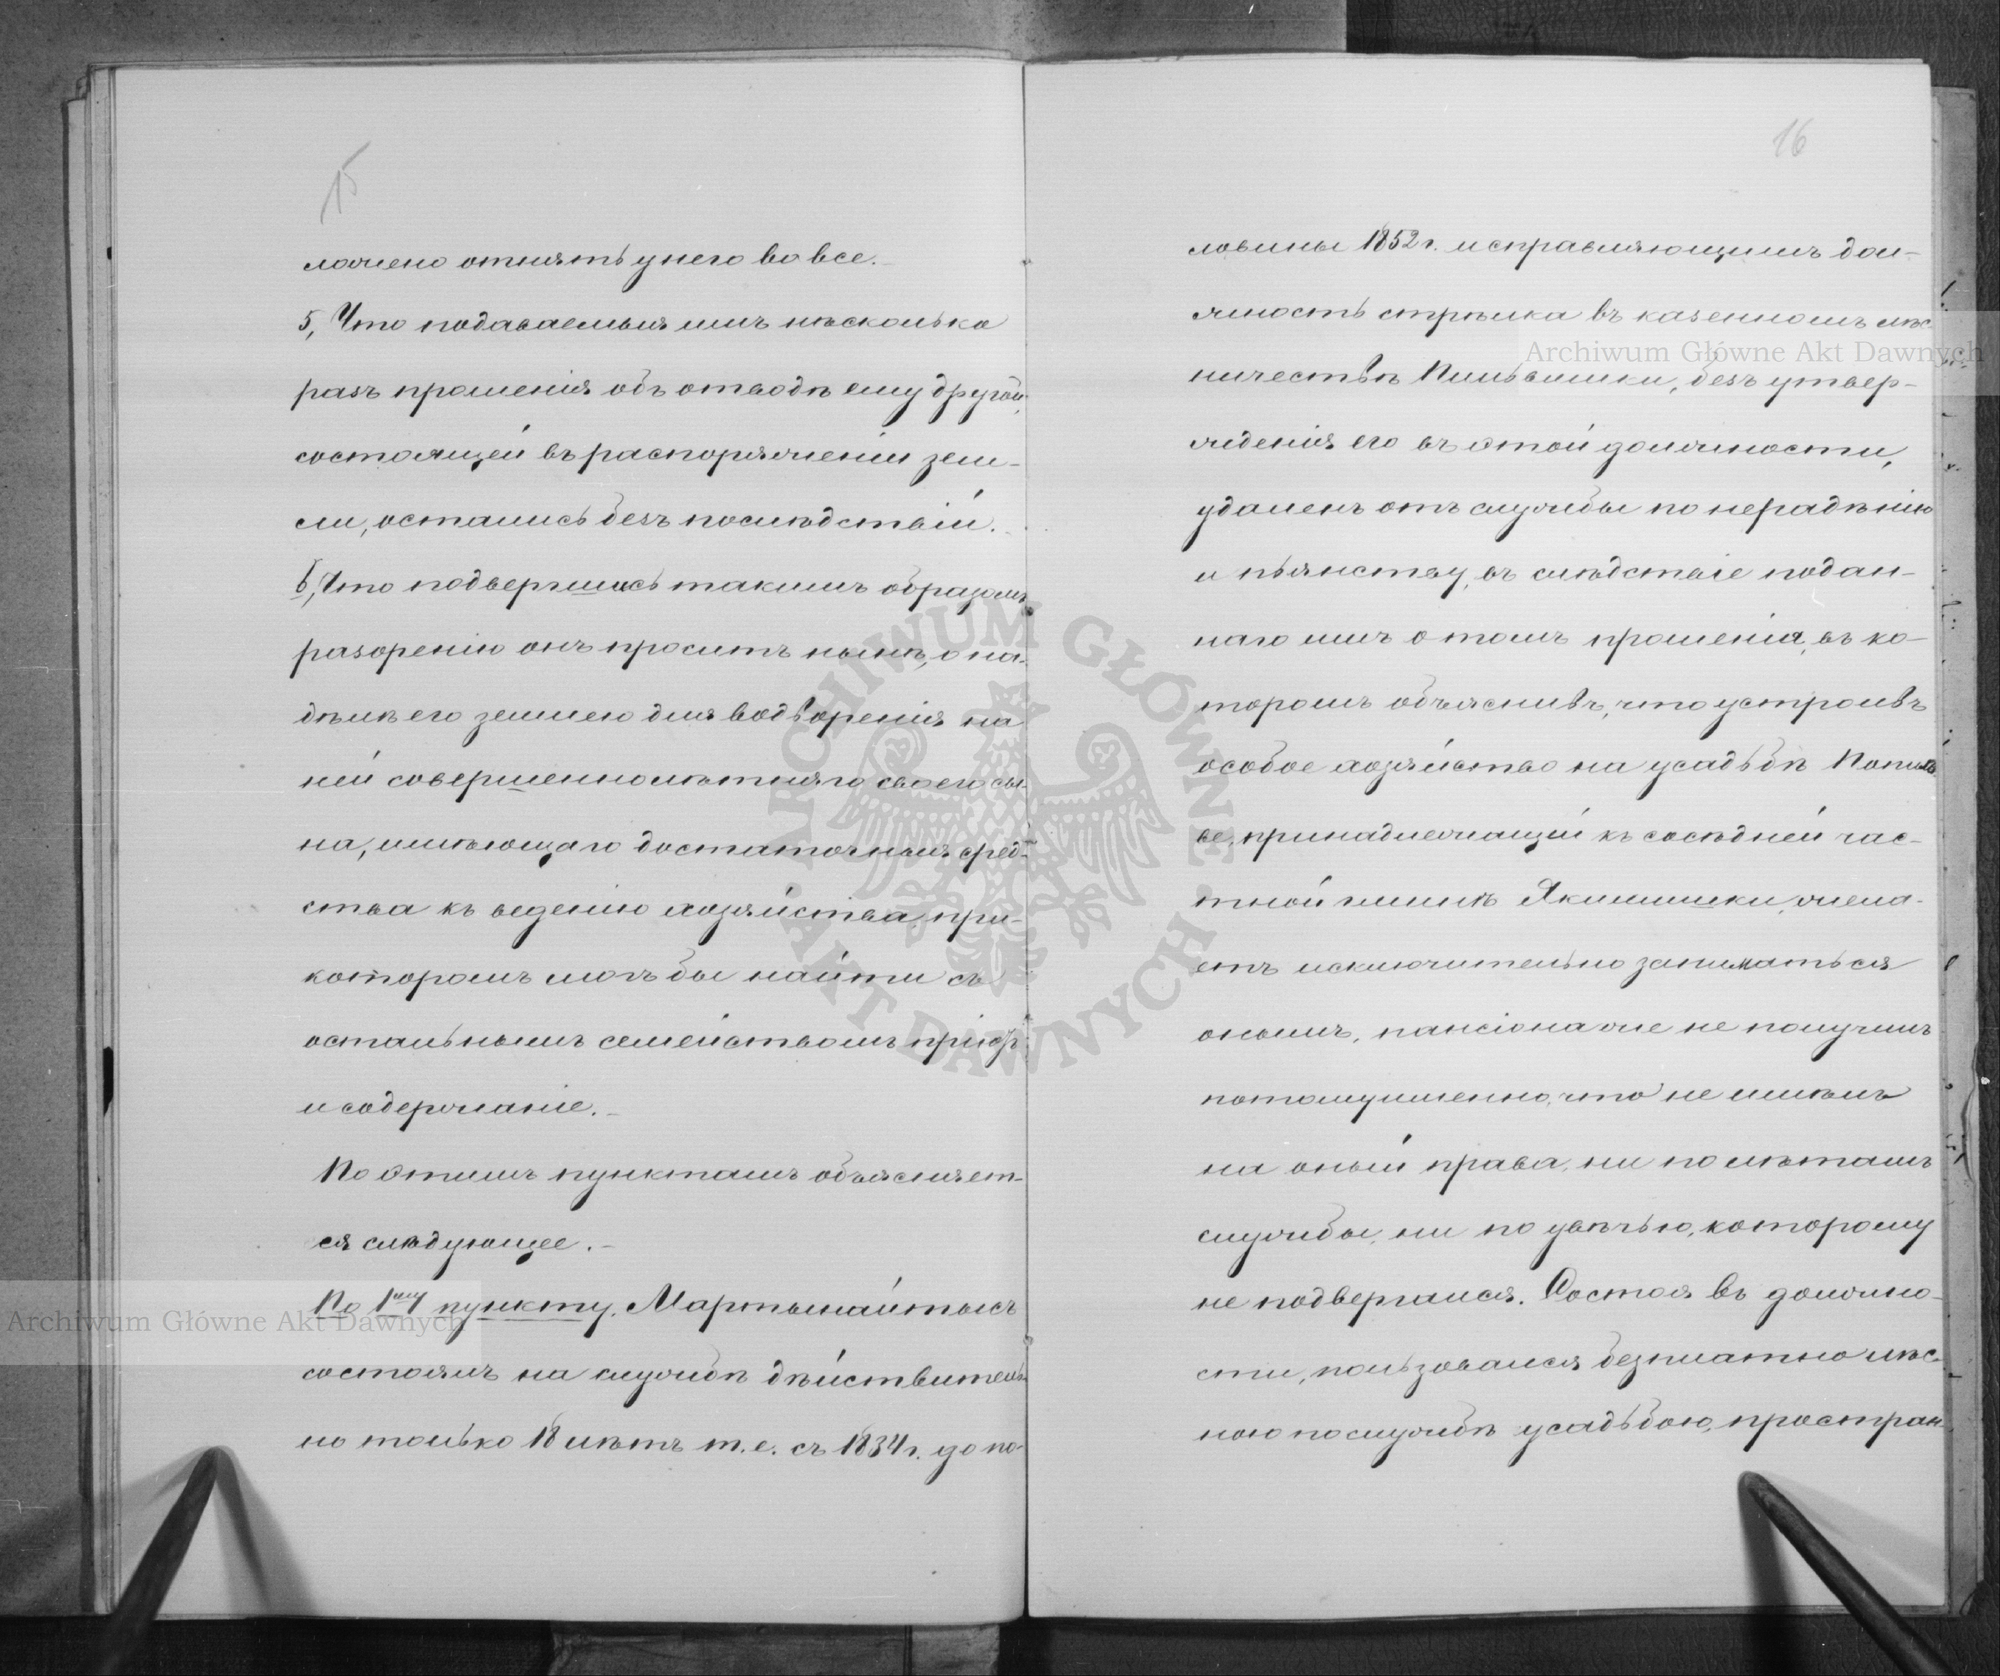 15
ложено отнять у него вовсе.
5, Что подаваемыя имъ нѣсколько
разъ прошенія объ отводѣ ему другой,
состоящей въ распоряженіи зем-
ли, остались безъ послѣдствій.
6, Что подвергшись такимъ образомъ
разоренію онъ проситъ нынѣ, о на-
дѣлѣ его землею для водворенія на
ней совершеннолѣтняго своего сы-
на, имѣющаго достаточныя сред-
ства къ веденію хозяйства, при
которомъ могъ бы найти съ
остальнымъ семействомъ пріютъ
и содержаніе.
По этимъ пунктамъ объясняет-
ся слѣдующее.
По 1му пункту. Мартынайтысъ
состоялъ на службѣ дѣйствитель-
но только 18 лѣтъ т. е. съ 1834 г. до по-
16
ловины 1852 г. и справляющимъ дол-
жность стрѣлка въ казенномъ лѣс-
ничествѣ Пильвишки, безъ утвер-
жденія его въ этой должности,
удаленъ отъ службы по нерадѣнію
и пьянству, въ слѣдствіе подан-
наго имъ о томъ прошенія, въ ко-
торомъ объяснивъ, что устроивъ
особое хозяйство на усадьбѣ
ве, принадлежащей къ сосѣдней час-
тной гминѣ Якимишки, жела-
етъ исключительно заниматься
онымъ, пансіона же не получилъ
потому именно, что не имѣлъ
на оный права, ни по лѣтамъ
службы, ни по увѣчью, которому
не подвергался. Состоя въ должно-
сти, пользовался безплатно лѣс-
ною по службѣ усадьбою, простран-
Archiwum Główne Akt Dawnych
Archiwum Główne Akt Dawnych
ARCHIWUM GŁÓWNE AKT DAWNYCH